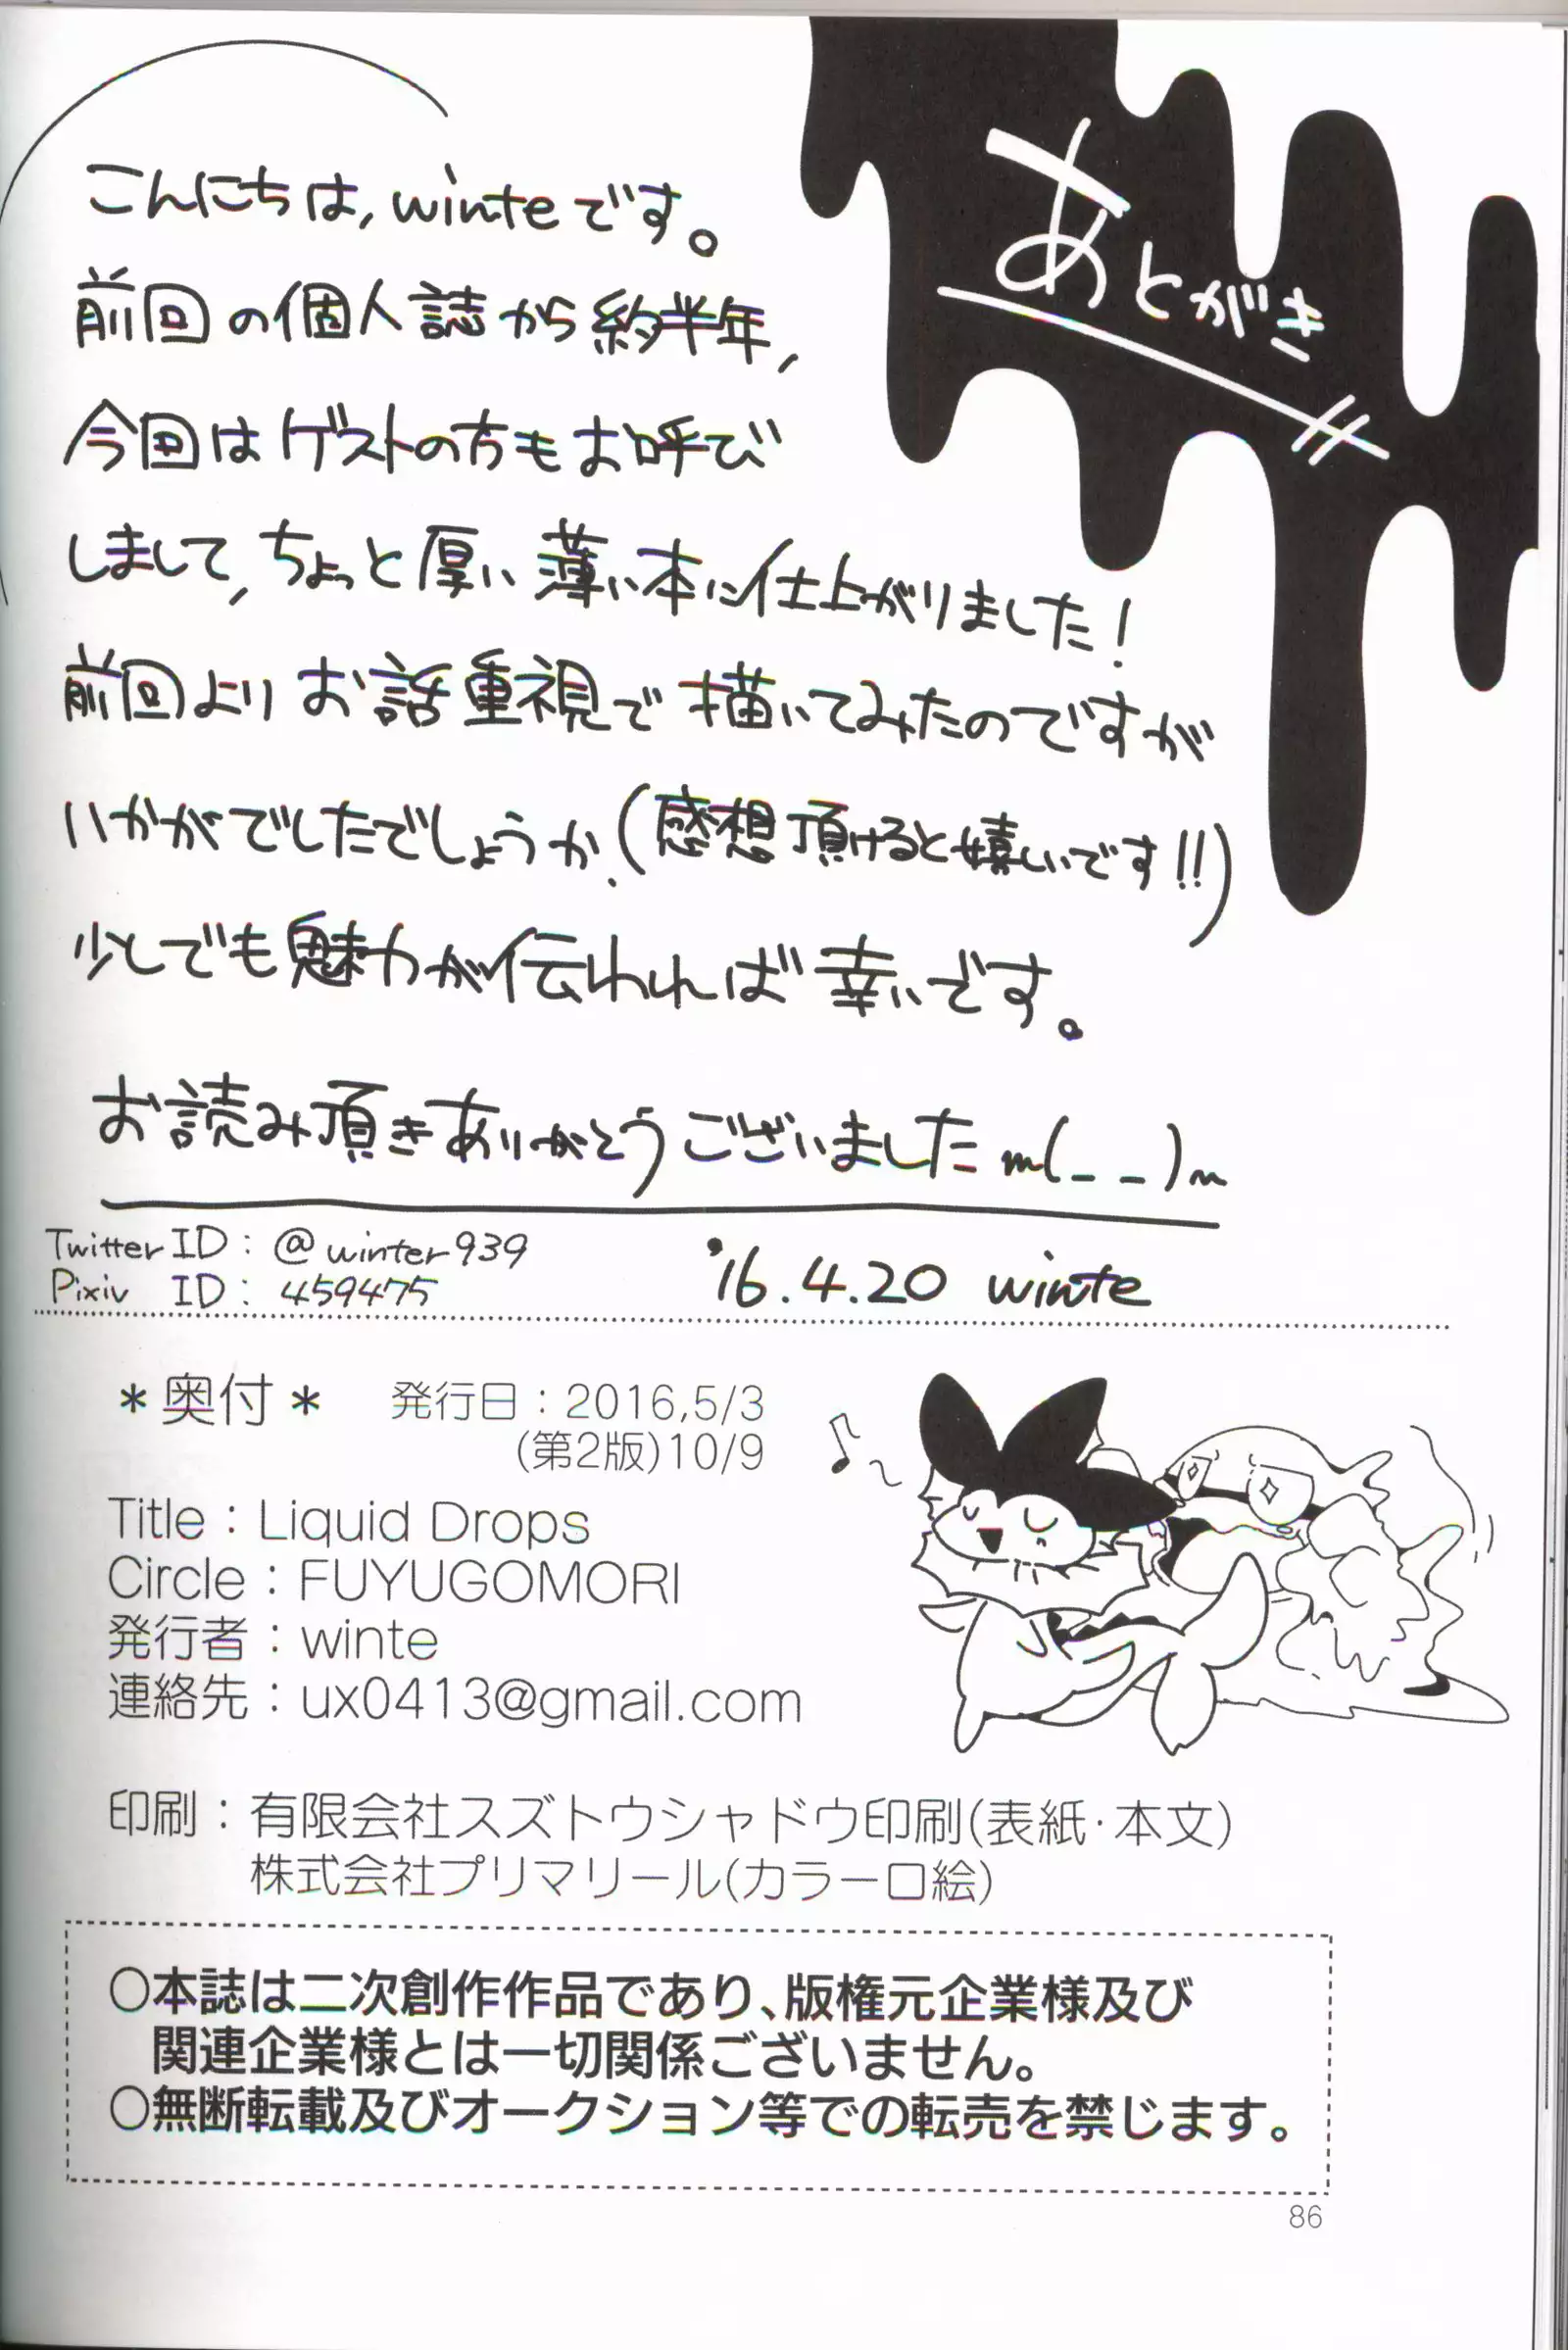 あとがき
こんにちは, winteです。
前回の個人誌から約半年,
今回はゲストの方もお呼び
しまして, ちょっと厚い薄い本に仕上がりました!
前回よりお話重視で描いてみたのですが
いかがでしたでしょうか. (感想頂けると嬉しいです!!)
少しでも魅力が伝われば幸いです。
お読み頂きありがとうございましたm(_ _)m
Twitter ID : @winter939
Pixiv ID : 459475
'16.4.20 winte
*奥付*
発行日：2016,5/3
(第2版)10/9
Title：Liquid Drops
Circle：FUYUGOMORI
発行者：winte
連絡先：ux0413@gmail.com
印刷：有限会社スズトウシャドウ印刷(表紙·本文)
株式会社プリマリール(カラー口絵)
○本誌は二次創作作品であり、版権元企業様及び
関連企業様とは一切関係ございません。
○無断転載及びオークション等での転売を禁じます。
86